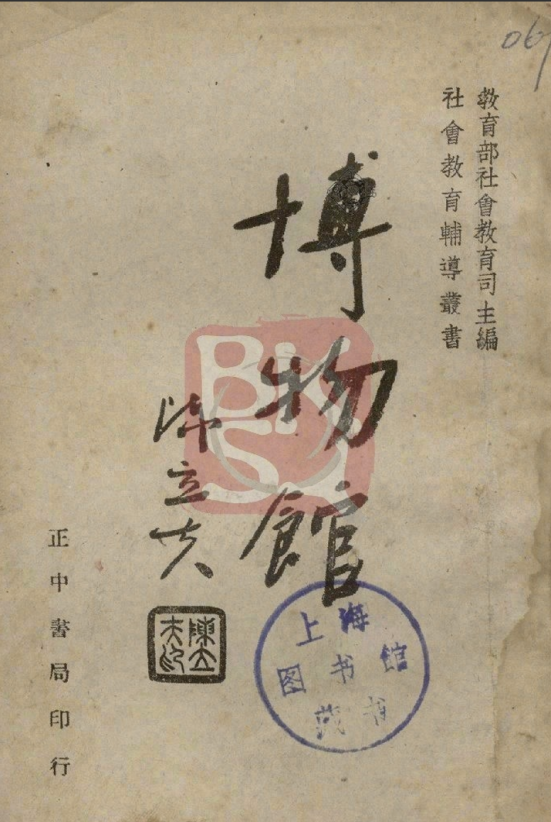 教育部社會教育司主編
社會教育輔導叢書
博物館
陳立夫
陳立
夫印
正中書局印行
上海
图书馆
藏书
BKSY
06